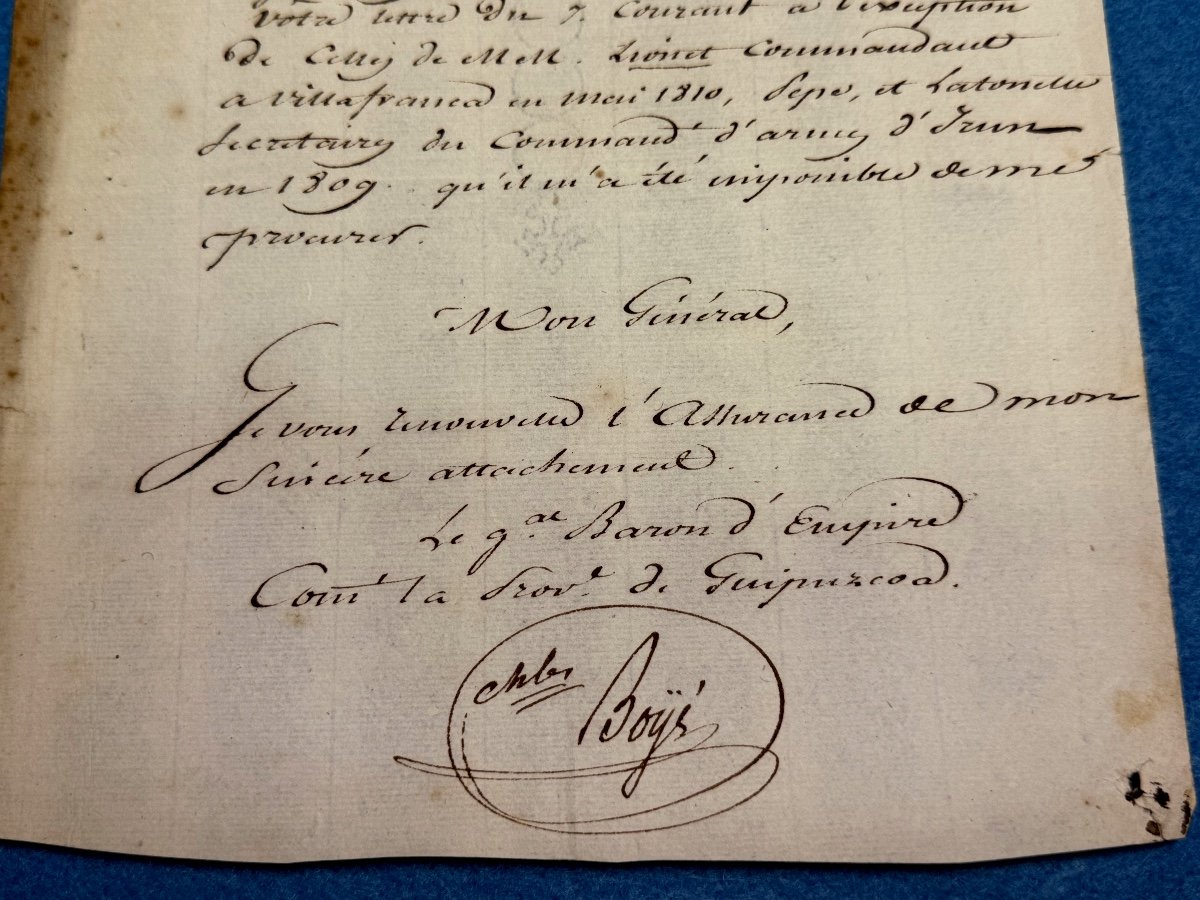 votre lettre du 7. Courant a l'exception
de Celles de MM. Lionet Commandant
a Villafranca en Mai 1810, Pepe, et
Secretaires du Command.t d'armes d'Irun
en 1809. qu'il m'a été impossible de me
procurer.
Mon Général,
Je vous renouvelle l'Assurance de mon
Sincère attachement.
Le g.al Baron d'Empire
Com.t la Prov.e de Guipuzcoa.
Boyé